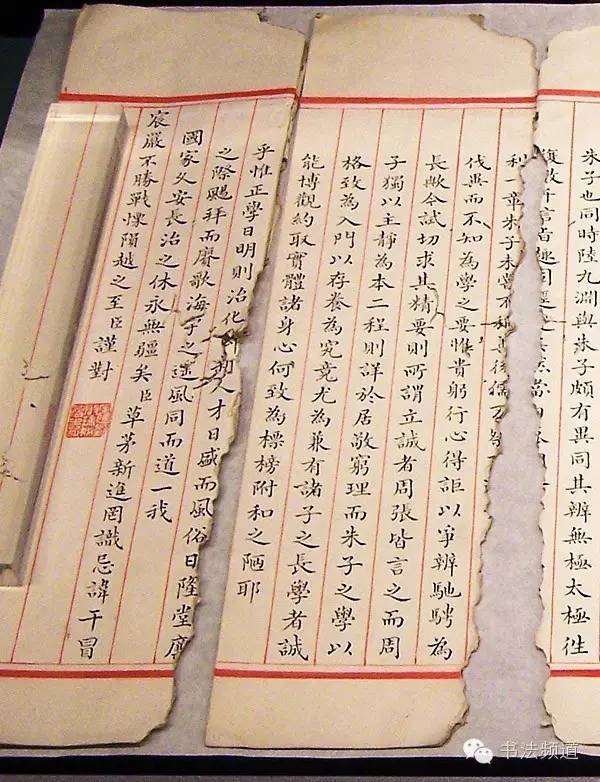 朱子也同時陸九淵與朱子頗有異同其辨無極太極往
復數千言旨趣固
利一章朱子未嘗不
伐異而不知為學之要惟貴躬行心得詎以爭辨馳騁為
長歟今試切求其精要則所謂立誠者周張皆言之而周
子獨以主靜為本二程則詳於居敬窮理而朱子之學以
格致為入門以存養為究竟尤為兼有諸子之長學者誠
能博觀約取實體諸身心何致為標榜附和之陋耶
乎惟正學日明則治化人才日盛而風俗日隆堂廉
之際颺拜而賡歌海宇之遙風同而道一哉
國家久安長治之休永無疆矣臣草茅新進罔識忌諱干冒
宸嚴不勝戰慄隕越之至臣謹對
书法频道